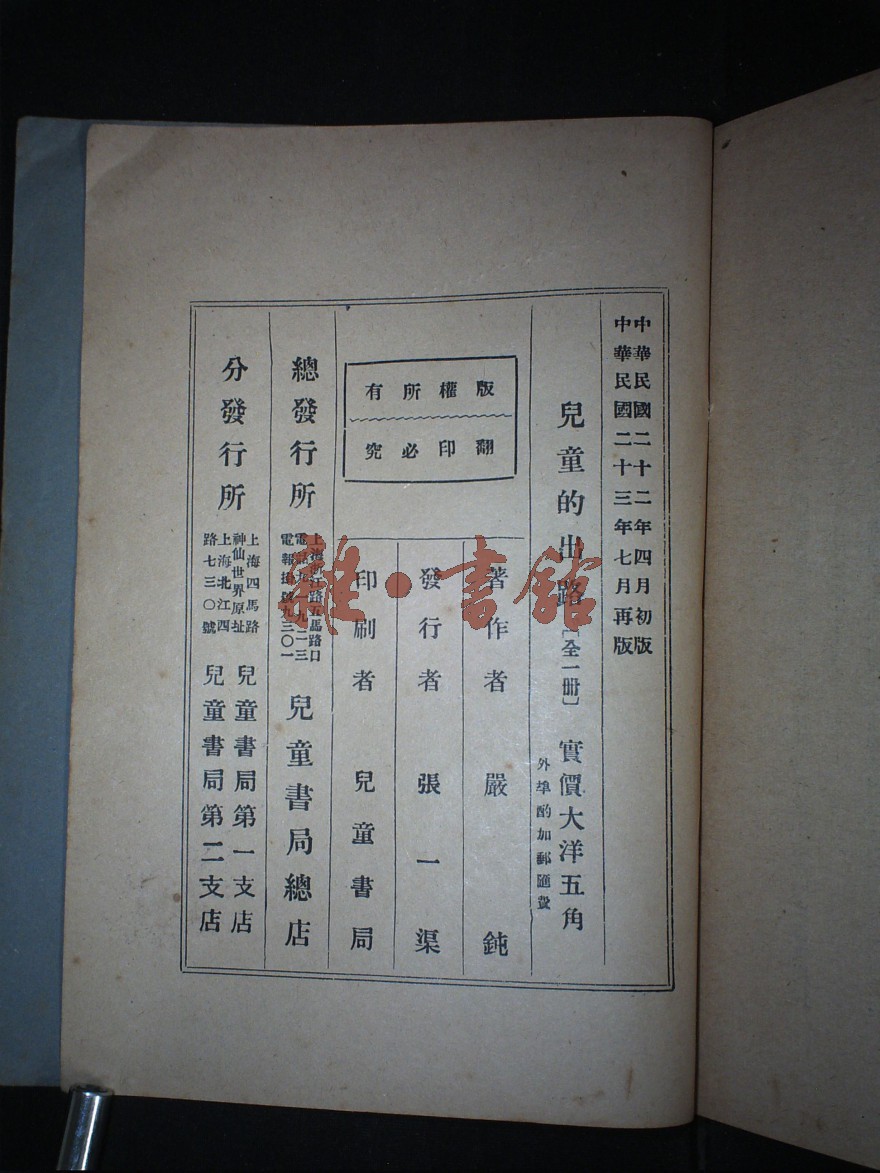 中華民國二十二年四月初版
中華民國二十三年七月再版
兒童的出路〔全一冊〕
實價大洋五角
外埠酌加郵匯費
版權所有
翻印必究
著作者 嚴鈍
發行者 張一渠
印刷者 兒童書局
總發行所
上海浙江路五馬路口
電話九一九二三
電報掛號九三〇一
兒童書局總店
分發行所
上海四馬路
神仙世界原址
兒童書局第一支店
上海北江西
路七三〇號
兒童書局第二支店
雜·書館